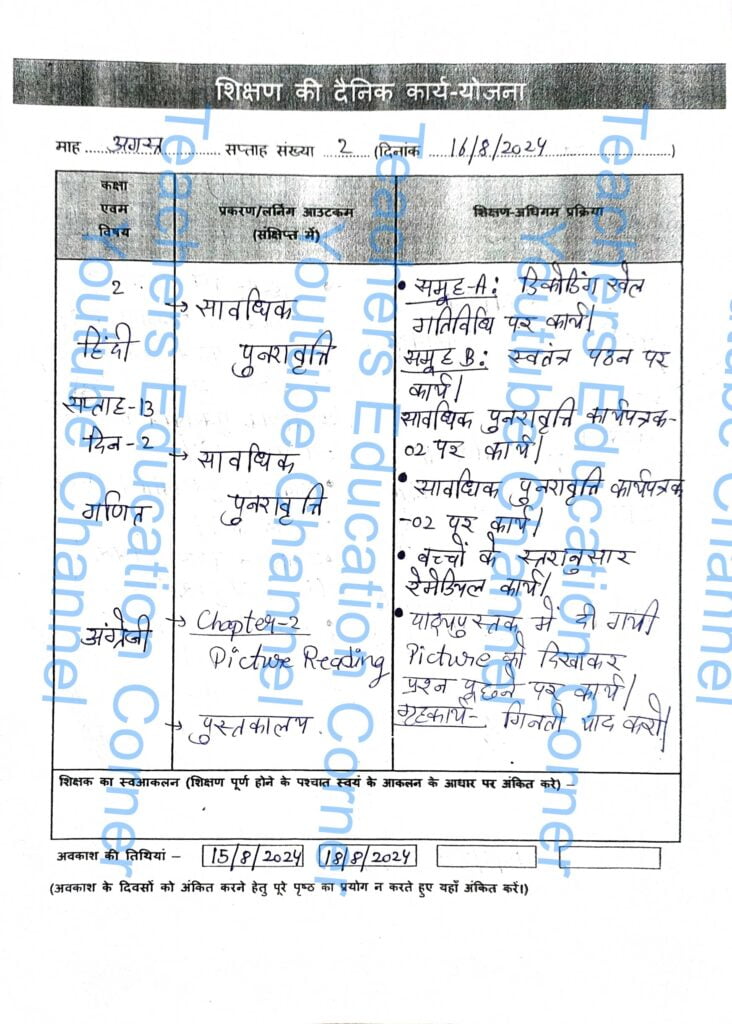 शिक्षण की दैनिक कार्य-योजना
माह ..... अगस्त ..... सप्ताह संख्या ... 2 ... (दिनांक .... 16/8/2024 ....)
कक्षा एवम विषय
प्रकरण/लर्निंग आउटकम (संक्षिप्त में)
शिक्षण-अधिगम प्रक्रिया
2
हिंदी
सप्ताह-13
दिन-2
→ सावधिक
पुनरावृत्ति
• समूह-A: डिकोडिंग खेल
गतिविधि पर कार्य।
समूह B: स्वतंत्र पठन पर
कार्य।
सावधिक पुनरावृत्ति कार्यपत्रक-
02 पर कार्य।
गणित
→ सावधिक
पुनरावृत्ति
• सावधिक पुनरावृत्ति कार्यपत्रक
-02 पर कार्य।
• बच्चों के स्तरानुसार
रेमेडियल कार्य।
अंग्रेजी
→ Chapter-2
Picture Reading
• पाठ्यपुस्तक में दी गयी
Picture को दिखाकर
प्रश्न पूछने पर कार्य।
→ पुस्तकालय
गृहकार्य- गिनती याद करो।
शिक्षक का स्वआकलन (शिक्षण पूर्ण होने के पश्चात स्वयं के आकलन के आधार पर अंकित करे) –
अवकाश की तिथियां – 15/8/2024 18/8/2024
(अवकाश के दिवसों को अंकित करने हेतु पूरे पृष्ठ का प्रयोग न करते हुए यहाँ अंकित करें।)
Teachers Education Corner
Youtube Channel
Teachers Education Corner
Youtube Channel
Teachers Education Corner
Youtube Channel